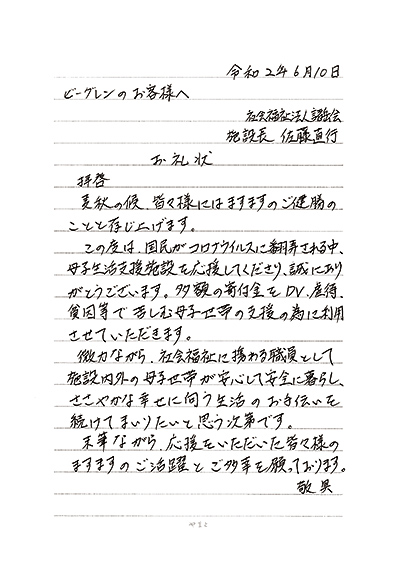 令和2年6月10日
ビーグレンのお客様へ
社会福祉法人
施設長 佐藤直行
お礼状
拝啓
の候、皆々様にはますますのご健勝の
ことと存じ上げます。
この度は、国民がコロナウイルスに翻弄される中、
母子生活支援施設を応援してくださり、誠にあり
がとうございます。多額の寄付金を、DV、虐待、
貧困等で苦しむ母子世帯の支援の為に利用
させていただきます。
微力ながら、社会福祉に携わる職員として
施設内外の母子世帯が安心して安全に暮らし、
ささやかな幸せに向う生活のお手伝いを
続けてまいりたいと思う次第です。
末筆ながら、応援をいただいた皆々様の
ますますのご活躍とご多幸を願っております。
敬具